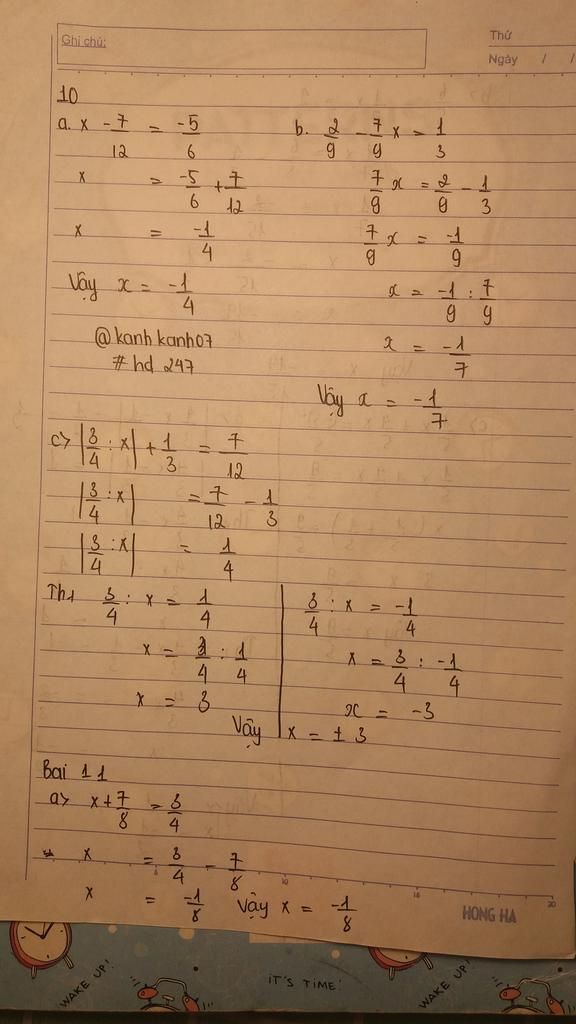 Ghi chú:
Thứ
Ngày / /
10
a. x - 7/12 = -5/6
x = -5/6 + 7/12
x = -1/4
Vậy x = -1/4
@kanhkanh07
#hd 247
b. 2/9 - 7/9 x = 1/3
7/9 x = 2/9 - 1/3
7/9 x = -1/9
x = -1/9 : 7/9
x = -1/7
Vậy x = -1/7
c> |3/4 : x| + 1/3 = 7/12
|3/4 : x| = 7/12 - 1/3
|3/4 : x| = 1/4
Th1 3/4 : x = 1/4
x = 3/4 : 1/4
x = 3
3/4 : x = -1/4
x = 3/4 : -1/4
x = -3
Vậy x = ± 3
Bai 11
a> x + 7/8 = 3/4
x = 3/4 - 7/8
x = -1/8 Vậy x = -1/8
5 10 15 20
HONG HA
WAKE UP!
IT'S TIME!
WAKE UP!